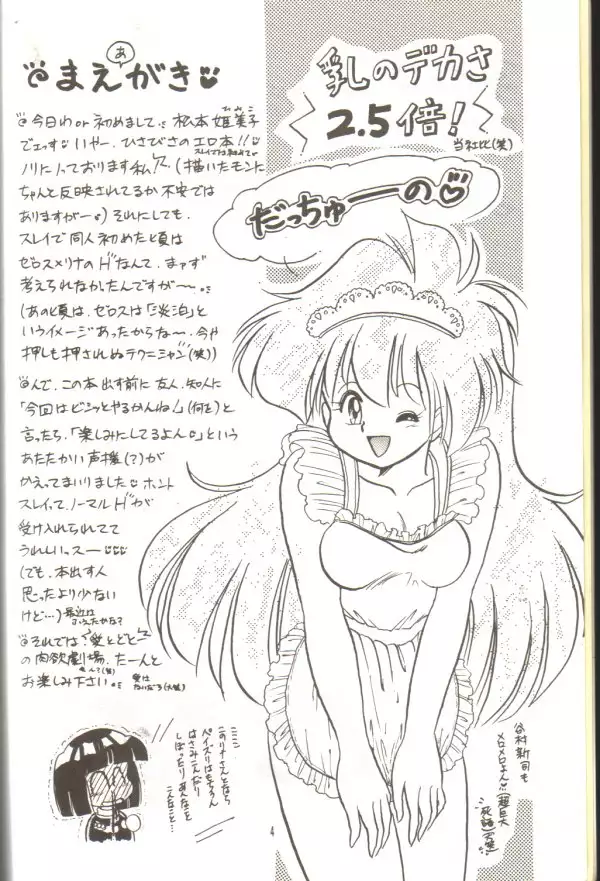 まえがき
あ
今日わor初めまして。松本姫美子
ひみこ
でエっす いやー、ひさびさのエロ本!!
ノリにノっております私 (描いたモンに
ちゃんと反映されてるか不安では
ありますがー) それにしても、
スレイで同人初めた頃は
ゼロスメリナのHなんて、まァず
考えられなかったんですが〜。
(あの頃は、ゼロスは「淡泊」と
いうイメージあったからな〜、今や
押しも押されぬテクニシャン(笑))
んで、この本出す前に友人、知人に
「今回はビシッとやるかんね!(何を)」と
言ったら、「楽しみにしてるよん」という
あたたかい声援(?)が
かえってまいりました ホント
スレイって、ノーマルHが
受け入れられてて
うれしいっスー
(でも、本出す人
思ったより少ない
けど…)
それでは、愛と
の肉欲劇場、たーんと
お楽しみ下さい。
愛は
ないだろ(大笑)
乳しのデカさ
2.5倍!
当社比(笑)
だっちゅーの
ミミミ
このリナさんとなら
パイズリはもちろん
はさみこんだり
しぼったりあんなこと
こんなこと…
谷村新司も
メロメロよん
(超巨大
死語)大笑
4